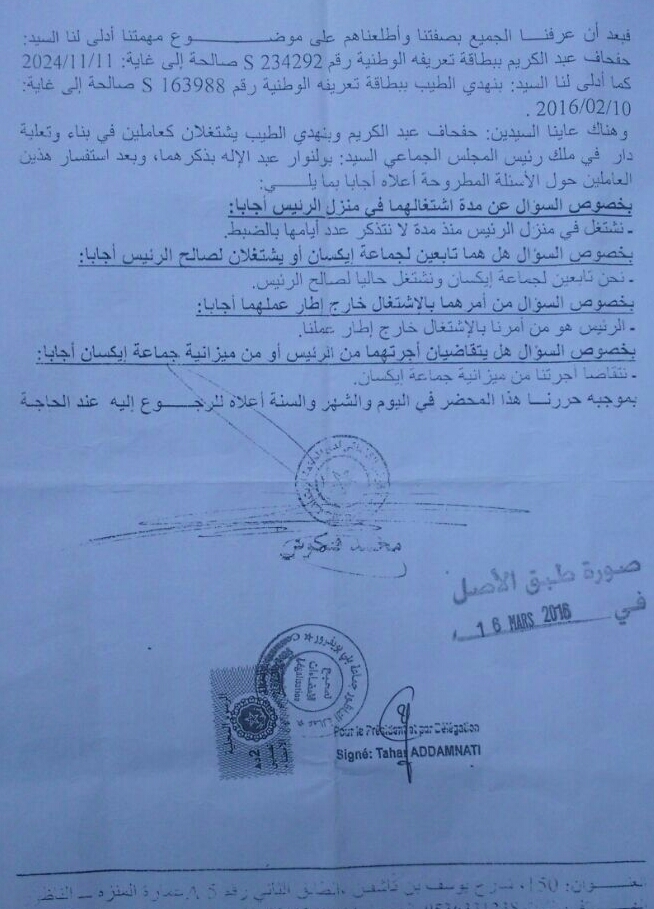 فبعد أن عرفنا الجميع بصفتنا وأطلعناهم على موضوع مهمتنا أدلى لنا السيد:
حفحاف عبد الكريم ببطاقة تعريفه الوطنية رقم S 234292 صالحة إلى غاية: 2024/11/11
كما أدلى لنا السيد: بنهدي الطيب ببطاقة تعريفه الوطنية رقم S 163988 صالحة إلى غاية:
2016/02/10 .
وهناك عاينا السيدين: حفحاف عبد الكريم وبنهدي الطيب يشتغلان كعاملين في بناء وتعلية
دار في ملك رئيس المجلس الجماعي السيد: بولنوار عبد الإله بذكرهما، وبعد استفسار هذين
العاملين حول الأسئلة المطروحة أعلاه أجابا بما يلي:
بخصوص السؤال عن مدة اشتغالهما في منزل الرئيس أجابا:
- نشتغل في منزل الرئيس منذ مدة لا نتذكر عدد أيامها بالضبط.
بخصوص السؤال هل هما تابعين لجماعة إيكسان أو يشتغلان لصالح الرئيس أجابا:
- نحن تابعين لجماعة إيكسان ونشتغل حاليا لصالح الرئيس.
بخصوص السؤال من أمرهما بالإشتغال خارج إطار عملهما أجابا:
- الرئيس هو من أمرنا بالإشتغال خارج إطار عملنا.
بخصوص السؤال هل يتقاضيان أجرتهما من الرئيس أو من ميزانية جماعة إيكسان أجابا:
- نتقاصا أجرتنا من ميزانية جماعة ايكسان.
بموجبه حررنا هذا المحضر في اليوم والشهر والسنة أعلاه للرجوع إليه عند الحاجة
محمد
صورة طبق الأصل
في 16 MARS 2016
تصحيح
الامضاءات
Légalisation
Pour le Président et par Délégation
Signé: Tahar ADDAMNATI
العنوان: 150، شارع يوسف بن تاشفين ،الطابق الثاني رقم 5 عمارة المنزه – الناظور